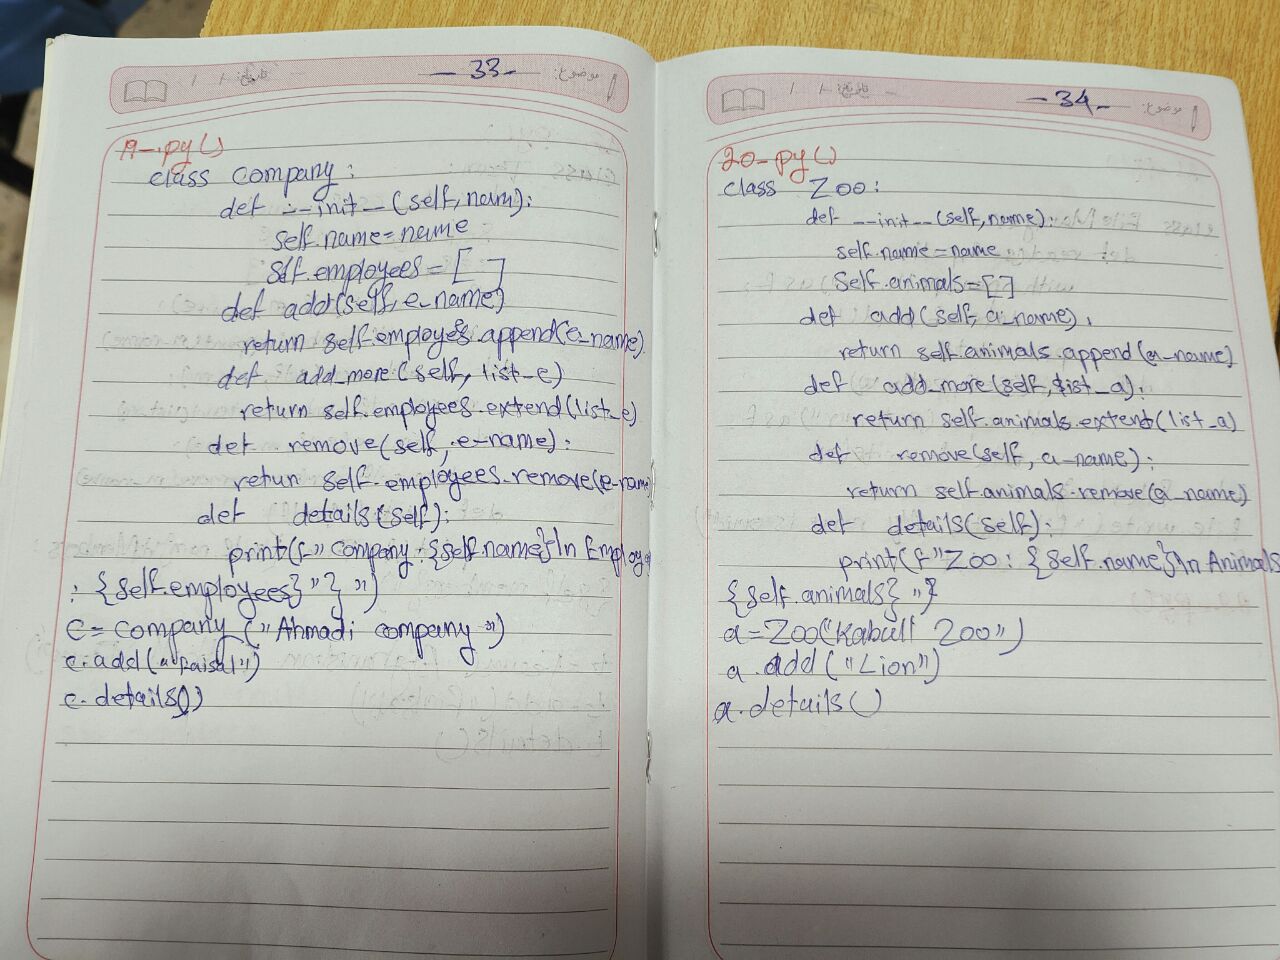 -33-
موضوع:
19-.py()
class company:
def __init__(self, nam):
self.name=name
self.employees=[ ]
def add(self, e_name)
return self.employes.append(e_name)
def add_more(self, list_e)
return self.employees.extend(list_e)
def remove(self, e_name):
retun self.employees.remove(e-name
def details(self):
print(f" company: {self.name}\n Employe
: {self.employees}"}")
c=company ("Ahmadi company")
c.add("Faisal")
c.details()
-34-
موضوع:
20-py()
class Zoo:
def __init__(self, name):
self.name=name
Self.animals=[ ]
def add(self, a_name),
return self.animals.append(a_name)
def add_more(self, list_a):
return self.animals.extend(list_a)
def remove(self, a_name):
return self.animals.remove(a_name)
def details(self):
print(f"Zoo: {self.name}\n Animals
{self.animals}"}
a=Zoo("Kabull Zoo")
a.add("Lion")
a.details()